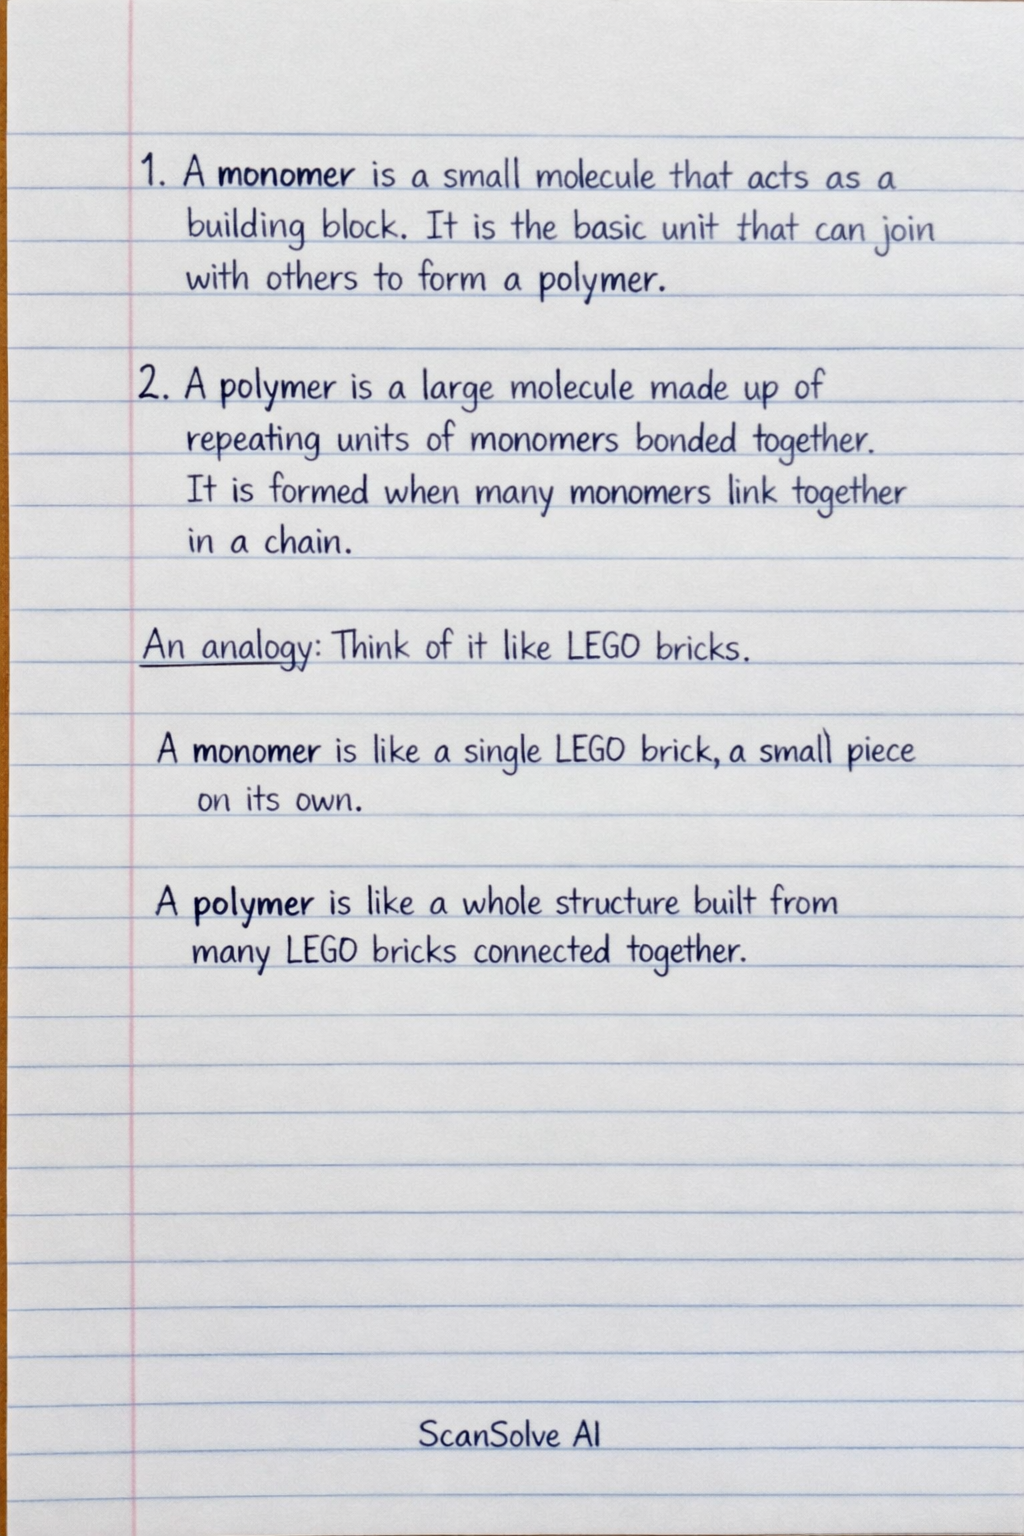 1. A monomer is a small molecule that acts as a
building block. It is the basic unit that can join
with others to form a polymer.
2. A polymer is a large molecule made up of
repeating units of monomers bonded together.
It is formed when many monomers link together
in a chain.
An analogy: Think of it like LEGO bricks.
A monomer is like a single LEGO brick, a small piece
on its own.
A polymer is like a whole structure built from
many LEGO bricks connected together.
ScanSolve AI